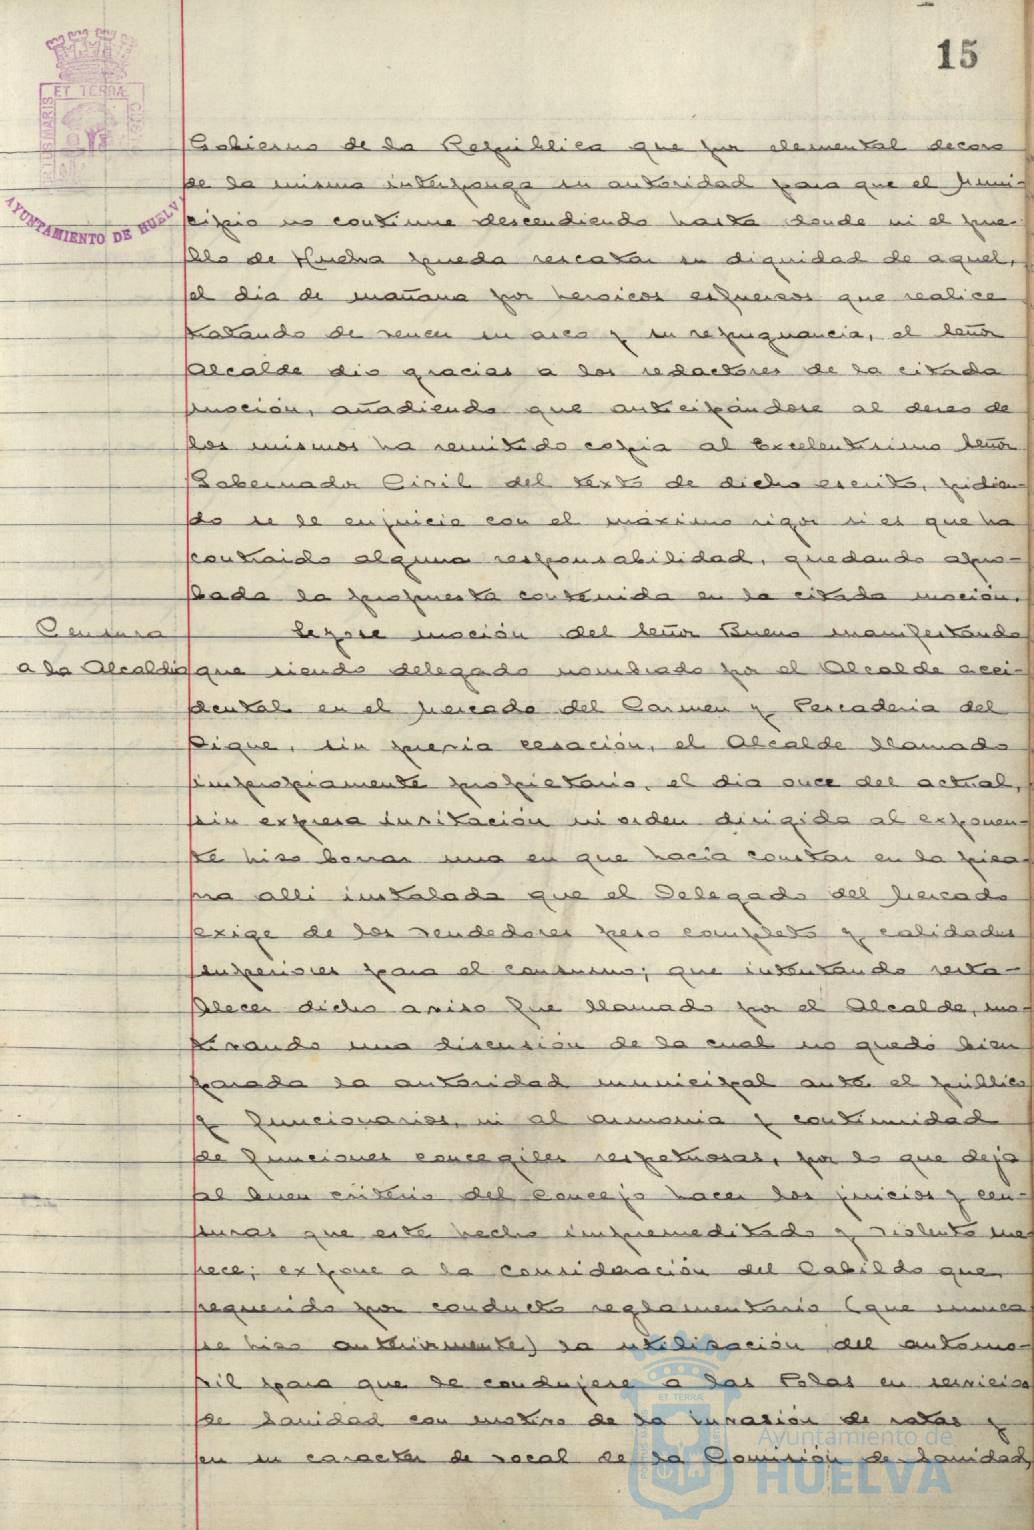 15
ET TERRÆ
AYUNTAMIENTO DE HUELVA
Gobierno de la República que por elemental decoro
de la misma interponga su autoridad para que el Muni-
cipio no continue descendiendo hasta donde ni el pue-
blo de Huelva pueda rescatar su dignidad de aquel,
el dia de mañana por heroicos esfuerzos que realice
tratando de vencer su asco y su repugnancia, el Señor
Alcalde dio gracias a los redactores de la citada
moción, añadiendo que anticipándose al deseo de
los mismos ha remitido copia al Excelentisimo Señor
Gobernador Civil del texto de dicho escrito, pidien-
do se le enjuicie con el máximo rigor si es que ha
contraido alguna responsabilidad, quedando apro-
bada la propuesta contenida en la citada moción.
Censura
a la Alcaldia
Leyose moción del Señor Bueno manifestando
que siendo delegado nombrado por el Alcalde acci-
dental en el Mercado del Carmen y Pescaderia del
Dique, sin previa cesación, el Alcalde llamado
impropiamente propietario, el dia once del actual,
sin expresa invitación ni orden dirigida al exponen-
te hizo borrar una en que hacia constar en la piza-
rra alli instalada que el Delegado del Mercado
exige de los vendedores peso completo y calidades
superiores para el consumo; que intentando resta-
blecer dicho aviso fue llamado por el Alcalde, mo-
tivando una discusión de la cual no quedó bien
parada la autoridad municipal ante el público
y funcionarios, ni al armonia y continuidad
de funciones concegiles respetuosas, por lo que deja
al buen criterio del Concejo hacer los juicios y cen-
suras que este hecho impremeditado y violento me-
rece; expone a la consideración del Cabildo que,
requerido por conducto reglamentario (que nunca
se hizo anteriormente) la utilización del automo-
vil para que le condujese a las Colas en servicio
de Sanidad con motivo de la invasión de ratas y
en su caracter de vocal de la Comisión de Sanidad,
Ayuntamiento de
HUELVA